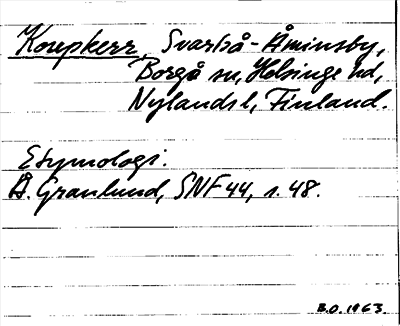 Koupkerr, Svartså-Åminsby,
Borgå sn, Helsinge hd,
Nylands l, Finland.
Etymologi.
Å. Granlund, SNF 44, s. 48.
B.O. 1963.